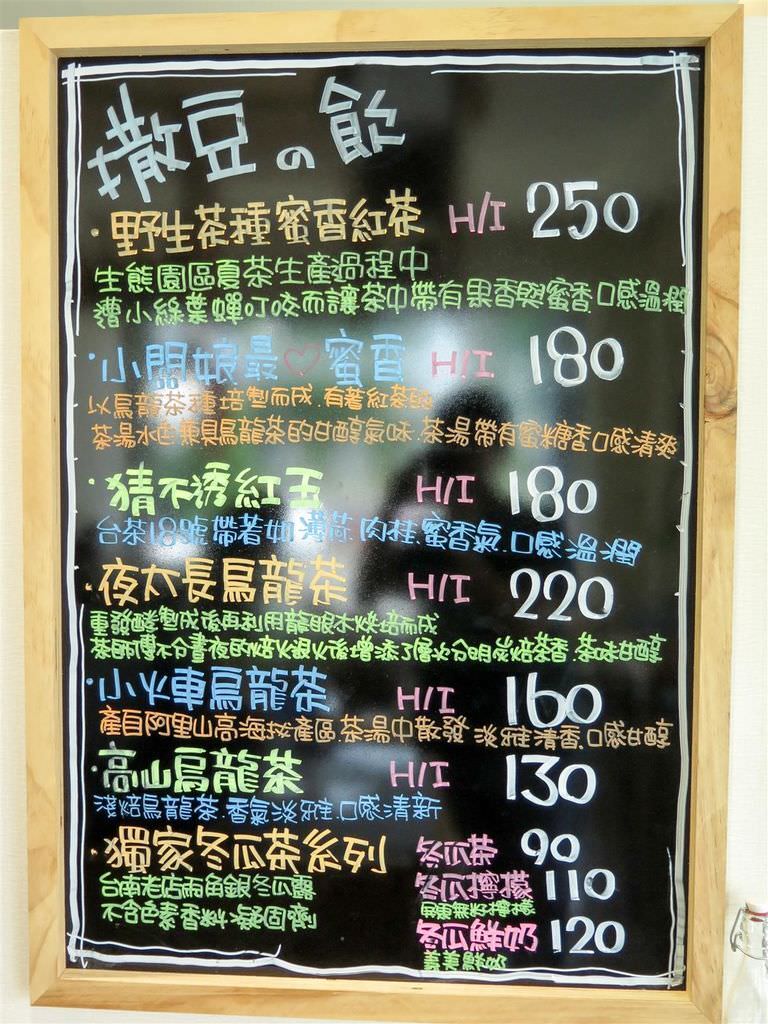 撒豆の飲
·野生茶種蜜香紅茶 H/I 250
生態園區夏茶生產過程中
遭小綠葉蟬叮咬而讓茶中帶有果香與蜜香口感溫潤
·小闆娘最♡蜜香 H/I 180
以烏龍茶種培製而成.有著紅茶的
茶湯水色兼具烏龍茶的甘醇氣味.茶湯帶有蜜糖香口感清爽
·猜不透紅玉 H/I 180
台茶18號帶著如薄荷.肉桂.蜜香氣.口感溫潤
·夜太長烏龍茶 H/I 220
重發酵製成後再利用龍眼木烘培而成
茶師傅不分晝夜的焙火退火後增添了層次分明炭焙茶香.茶味甘醇
·小火車烏龍茶 H/I 160
產自阿里山高海拔產區.茶湯中散發淡雅清香.口感甘醇
·高山烏龍茶 H/I 130
淺焙烏龍茶.香氣淡雅.口感清新
·獨家冬瓜茶系列 冬瓜茶 90
台南老店兩角銀冬瓜露 冬瓜檸檬 110
不含色素香料凝固劑 屏東無籽檸檬
冬瓜鮮奶 120
義美鮮奶